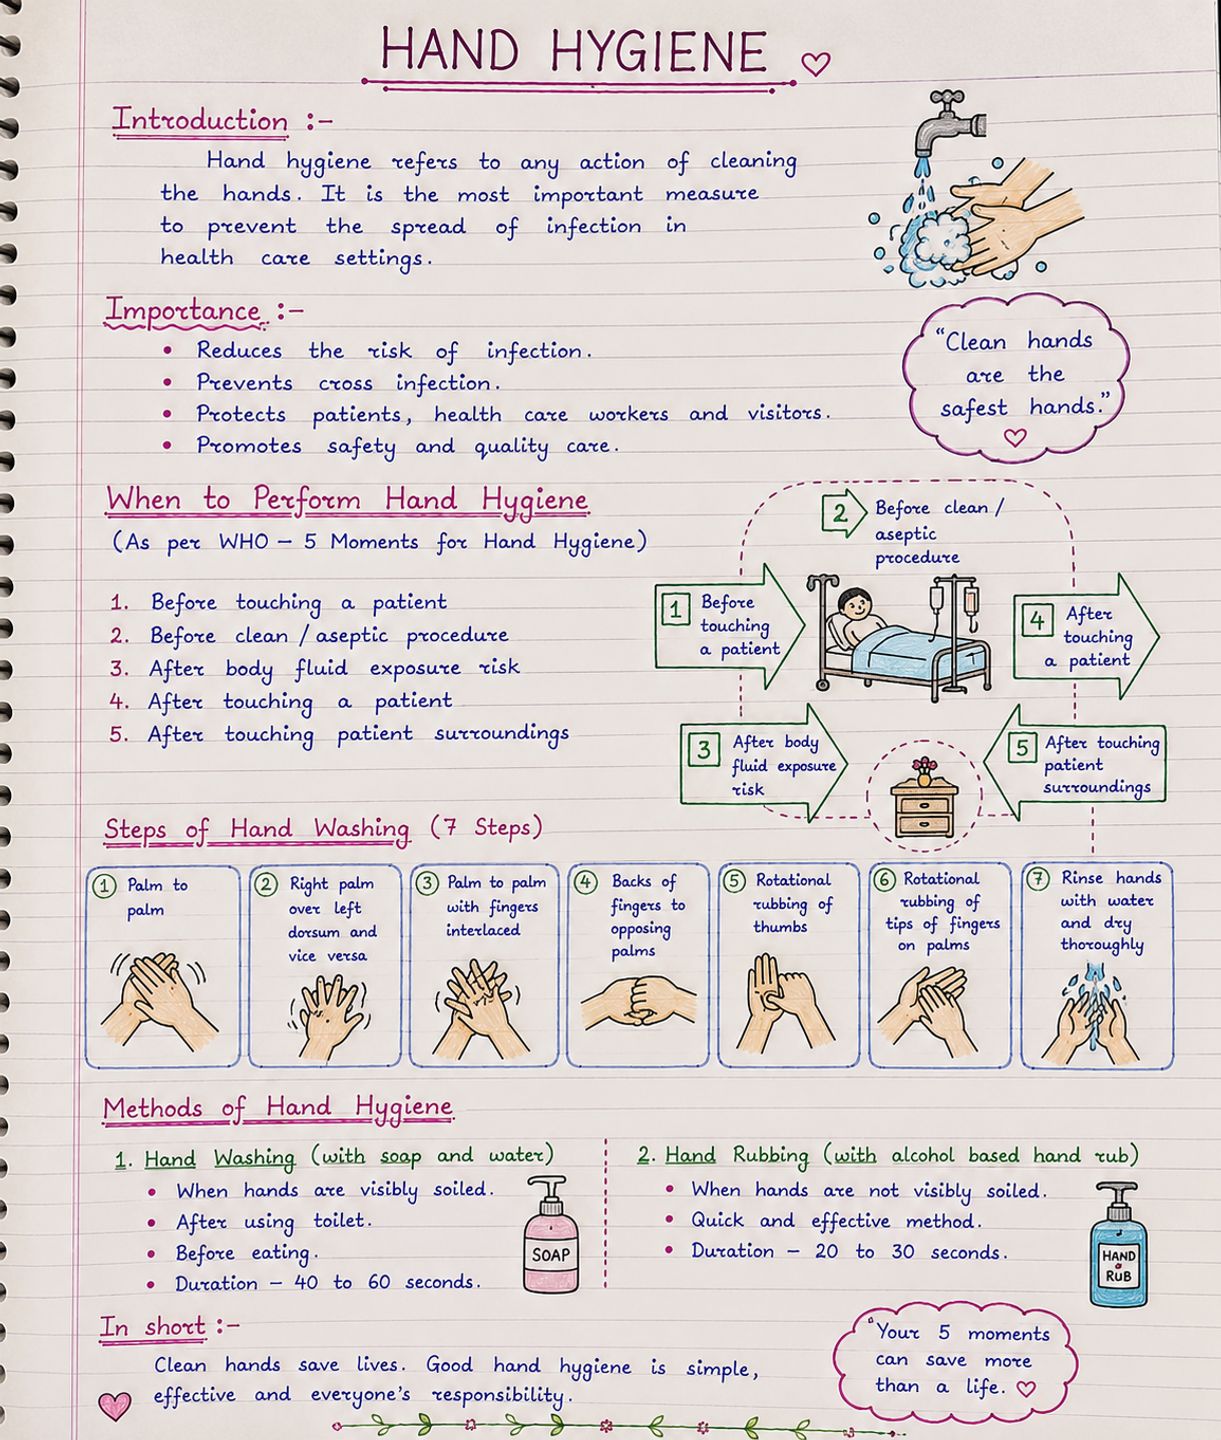 HAND HYGIENE
Introduction :-
Hand hygiene refers to any action of cleaning
the hands. It is the most important measure
to prevent the spread of infection in
health care settings.
Importance :-
• Reduces the risk of infection.
• Prevents cross infection.
• Protects patients, health care workers and visitors.
• Promotes safety and quality care.
"Clean hands
are the
safest hands."
When to Perform Hand Hygiene
(As per WHO – 5 Moments for Hand Hygiene)
1. Before touching a patient
2. Before clean / aseptic procedure
3. After body fluid exposure risk
4. After touching a patient
5. After touching patient surroundings
2 Before clean /
aseptic
procedure
1 Before
touching
a patient
4 After
touching
a patient
3 After body
fluid exposure
risk
5 After touching
patient
surroundings
Steps of Hand Washing (7 Steps)
1 Palm to
palm
2 Right palm
over left
dorsum and
vice versa
3 Palm to palm
with fingers
interlaced
4 Backs of
fingers to
opposing
palms
5 Rotational
rubbing of
thumbs
6 Rotational
rubbing of
tips of fingers
on palms
7 Rinse hands
with water
and dry
thoroughly
Methods of Hand Hygiene
1. Hand Washing (with soap and water)
• When hands are visibly soiled.
• After using toilet.
• Before eating.
• Duration – 40 to 60 seconds.
SOAP
2. Hand Rubbing (with alcohol based hand rub)
• When hands are not visibly soiled.
• Quick and effective method.
• Duration – 20 to 30 seconds.
HAND
RUB
In short :-
Clean hands save lives. Good hand hygiene is simple,
effective and everyone's responsibility.
"Your 5 moments
can save more
than a life.